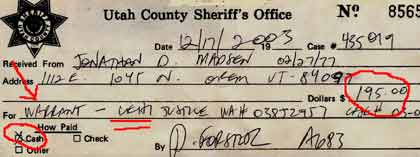 Utah County Sheriff's Office Nº 8565
Date 12/17/2003 19 Case # 435019
Received From JONATHAN D. MADSEN 02/27/77
Address 1112 E. 1045 N. OREM UT-84097
Dollars $ 195.00
For WARRANT - LEHI JUSTICE WAH 03852957
How Paid
Cash Check By D. A683
Other